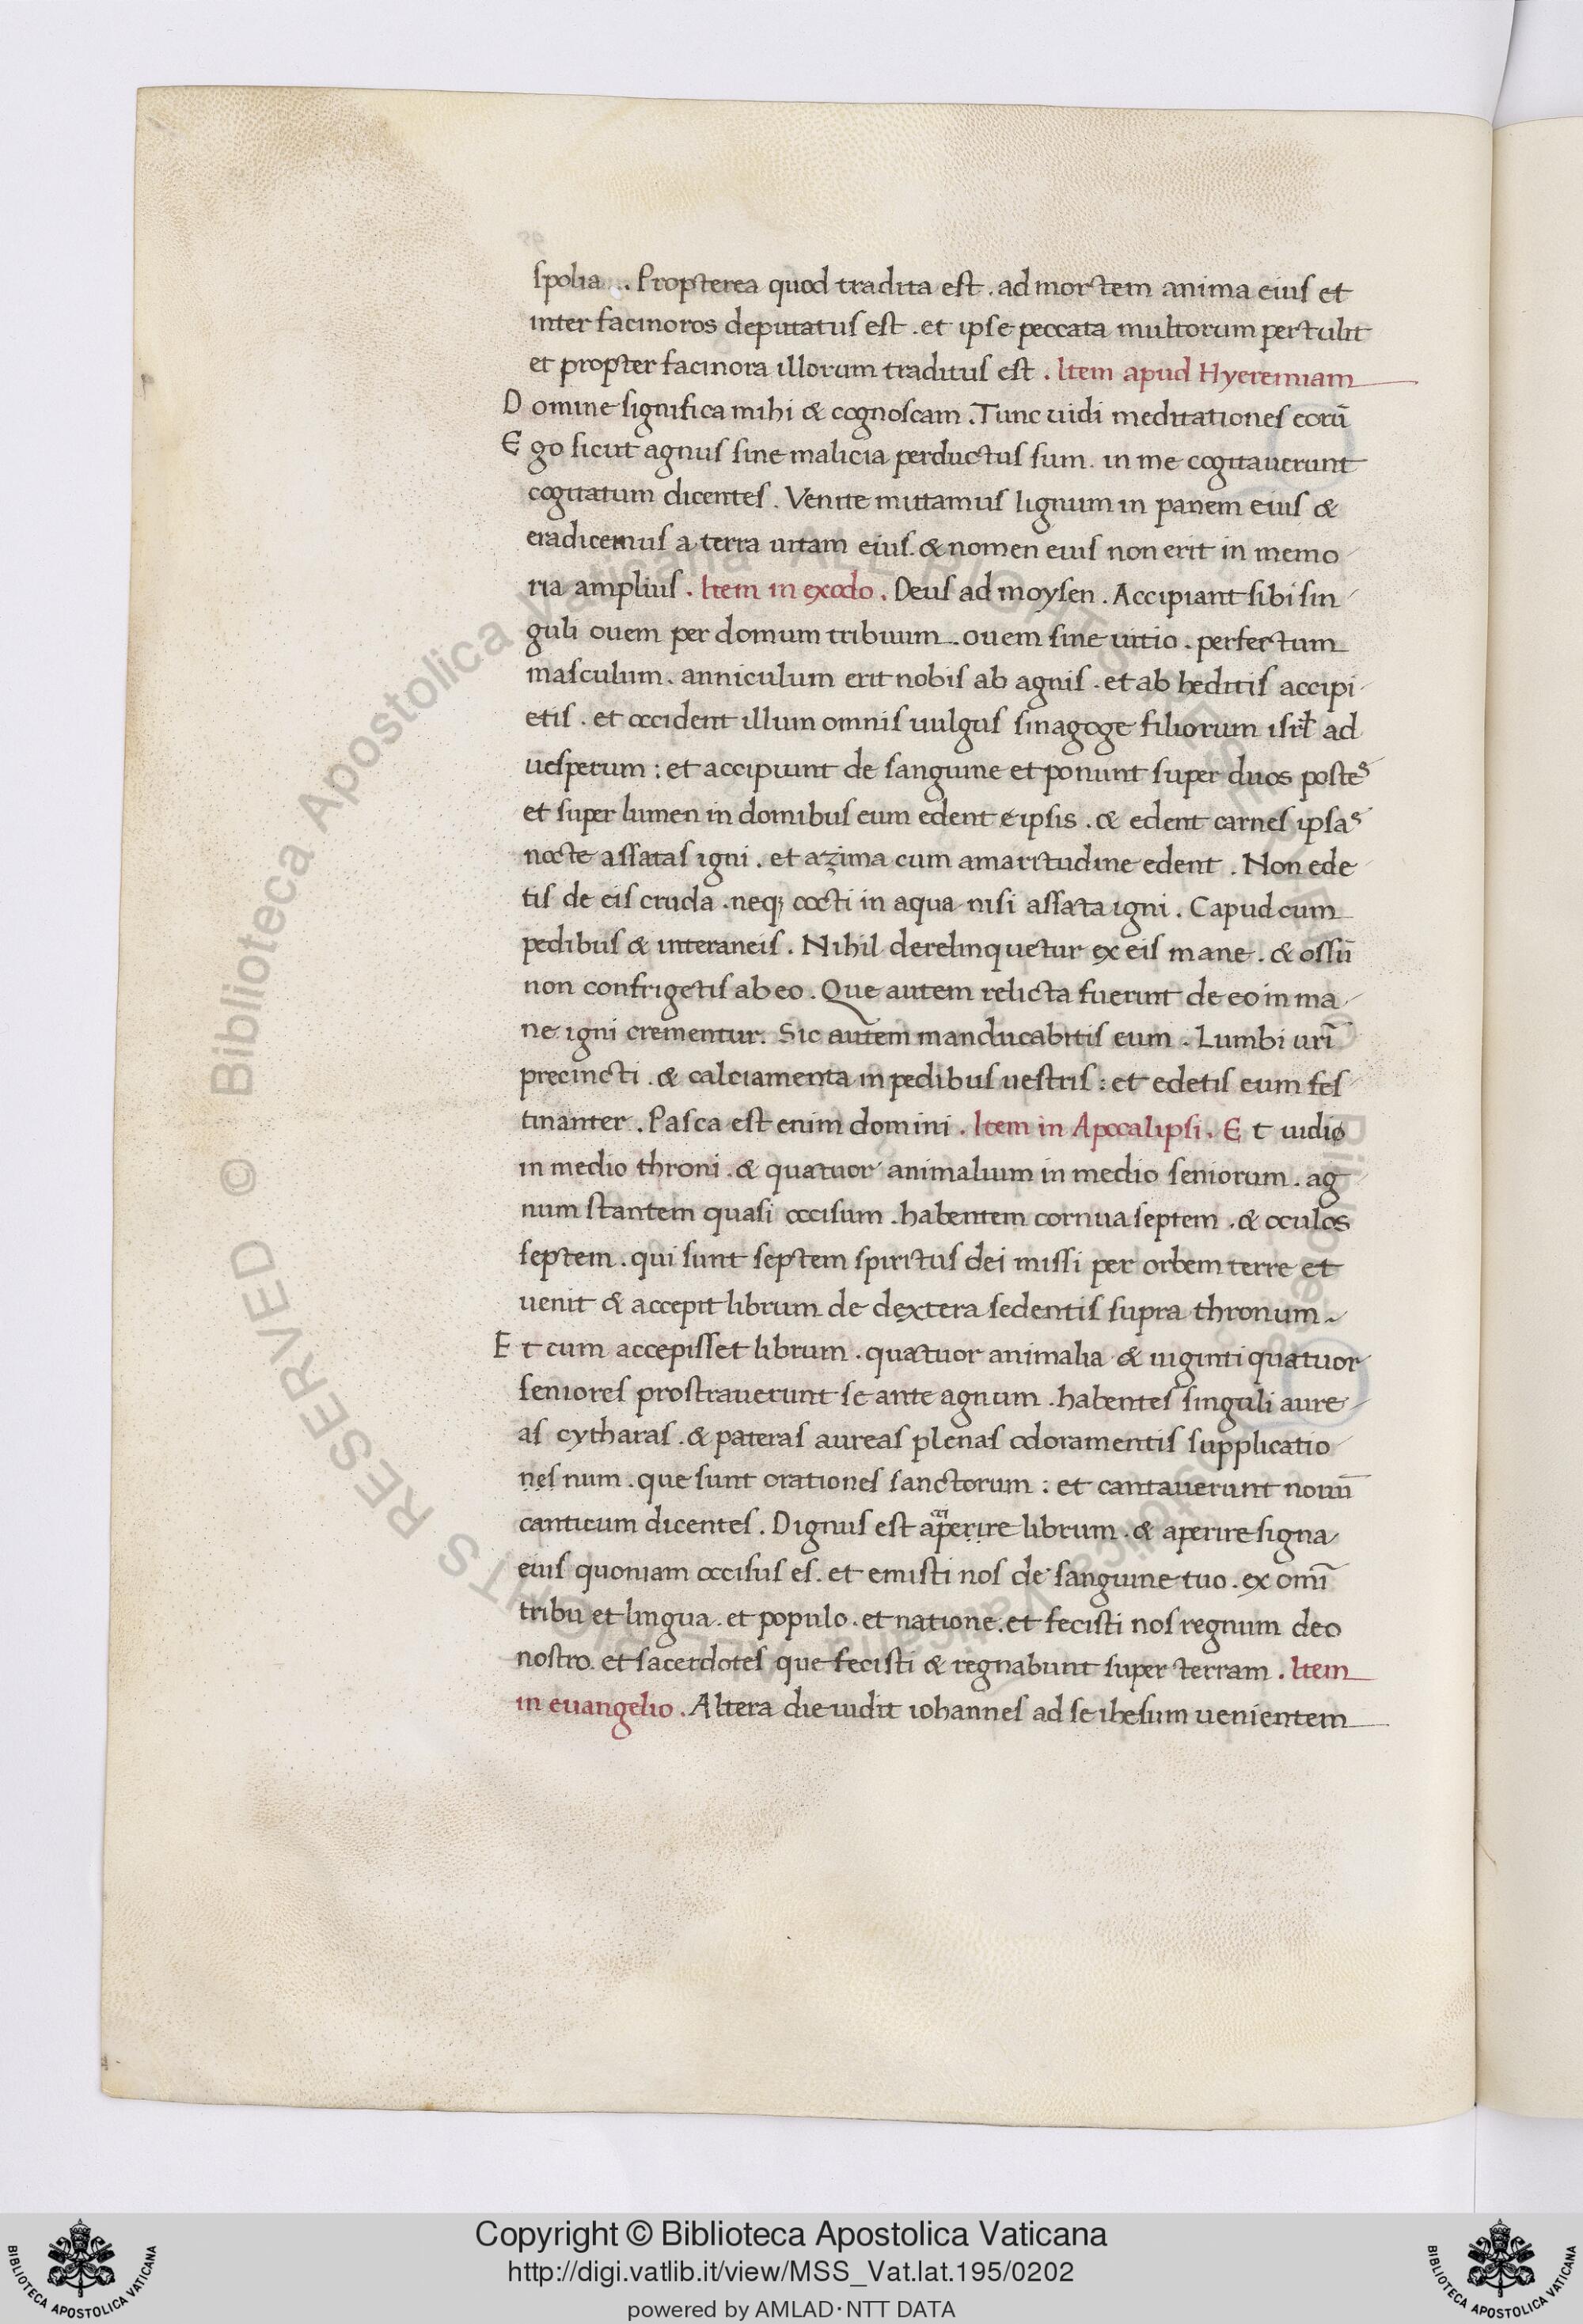 spolia . . Propterea quod tradita est . ad mortem anima eius et
inter facinoros deputatus est . et ipse peccata multorum pertulit
et propter facinora illorum traditus est . Item apud Hyeremiam
Domine significa mihi & cognoscam . Tunc uidi meditationes eorū
Ego sicut agnus sine malicia perductus sum . in me cogitauerunt
cogitatum dicentes . Venite mittamus lignum in panem eius &
eradicemus a terra uitam eius . & nomen eius non erit in memo
ria amplius . Item in exodo . Deus ad moysen . Accipiant sibi sin
guli ouem per domum tribuum . ouem sine uitio . perfectum
masculum . anniculum erit nobis ab agnis . et ab heditis accipi
etis . et occident illum omnis uulgus sinagoge filiorum isrl̄ ad
uesperum : et accipiunt de sanguine et ponunt super duos postes
et super limen in domibus eum edent e ipsis . & edent carnes ipsas
nocte assatas igni . et azima cum amaritudine edent . Non ede
tis de eis cruda . neq; cocti in aqua nisi assata igni . Capud cum
pedibus & interaneis . Nihil derelinquetur ex eis mane . & ossū
non confrigetis ab eo . Que autem relicta fuerint de eo in ma
ne igni crementur . Sic autem manducabitis eum . Lumbi urī
precincti . & calciamenta in pedibus uestris : et edetis eum fes
tinanter . Pasca est enim domini . Item in Apocalipsi . Et uidio
in medio throni . & quatuor animalium in medio seniorum . ag
num stantem quasi occisum . habentem cornua septem . & oculos
septem . qui sunt septem spiritus dei missi per orbem terre et
uenit & accepit librum de dextera sedentis supra thronum
Et cum accepisset librum . quatuor animalia & uiginti quatuor
seniores prostrauerunt se ante agnum . habentes singuli aure
as cytharas . & pateras aureas plenas odoramentis supplicatio
nes num . que sunt orationes sanctorum : et cantauerunt nouū
canticum dicentes . Dignus est aperire librum . & aperire signa
eius quoniam occisus es . et emisti nos de sanguine tuo . ex omī
tribu et lingua . et populo . et natione . et fecisti nos regnum deo
nostro . et sacerdotes que fecisti & regnabunt super terram . Item
in euangelio . Altera die uidit iohannes ad se ihesum uenientem
Biblioteca Apostolica Vaticana ALL RIGHTS RESERVED ©
Copyright © Biblioteca Apostolica Vaticana
http://digi.vatlib.it/view/MSS_Vat.lat.195/0202
powered by AMLAD·NTT DATA
BIBLIOTECA APOSTOLICA VATICANA
BIBLIOTECA APOSTOLICA VATICANA